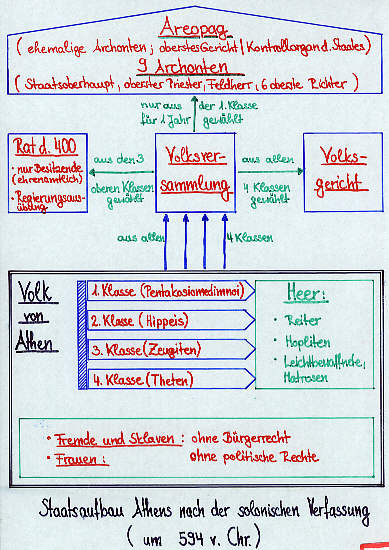 Areopag
( ehemalige Archonten ; oberstes Gericht / Kontrollorgan d. Staates)
9 Archonten
( Staatsoberhaupt, oberster Priester, Feldherr, 6 oberste Richter )
nur aus der 1. Klasse
für 1 Jahr gewählt
Rat d. 400
• nur Besitzende
(ehrenamtlich)
• Regierungsaus-
übung
aus den 3
oberen Klassen
gewählt
Volksver-
sammlung
aus allen
4 Klassen
gewählt
Volks-
gericht
aus allen 4 Klassen
Volk
von
Athen
1. Klasse (Pentakosiomedimnoi)
2. Klasse ( Hippeis)
3. Klasse (Zeugiten)
4. Klasse (Theten)
Heer:
• Reiter
• Hopliten
• Leichtbewaffnete,
Matrosen
• Fremde und Sklaven : ohne Bürgerrecht
• Frauen : ohne politische Rechte
Staatsaufbau Athens nach der solonischen Verfassung
( um 594 v. Chr.)